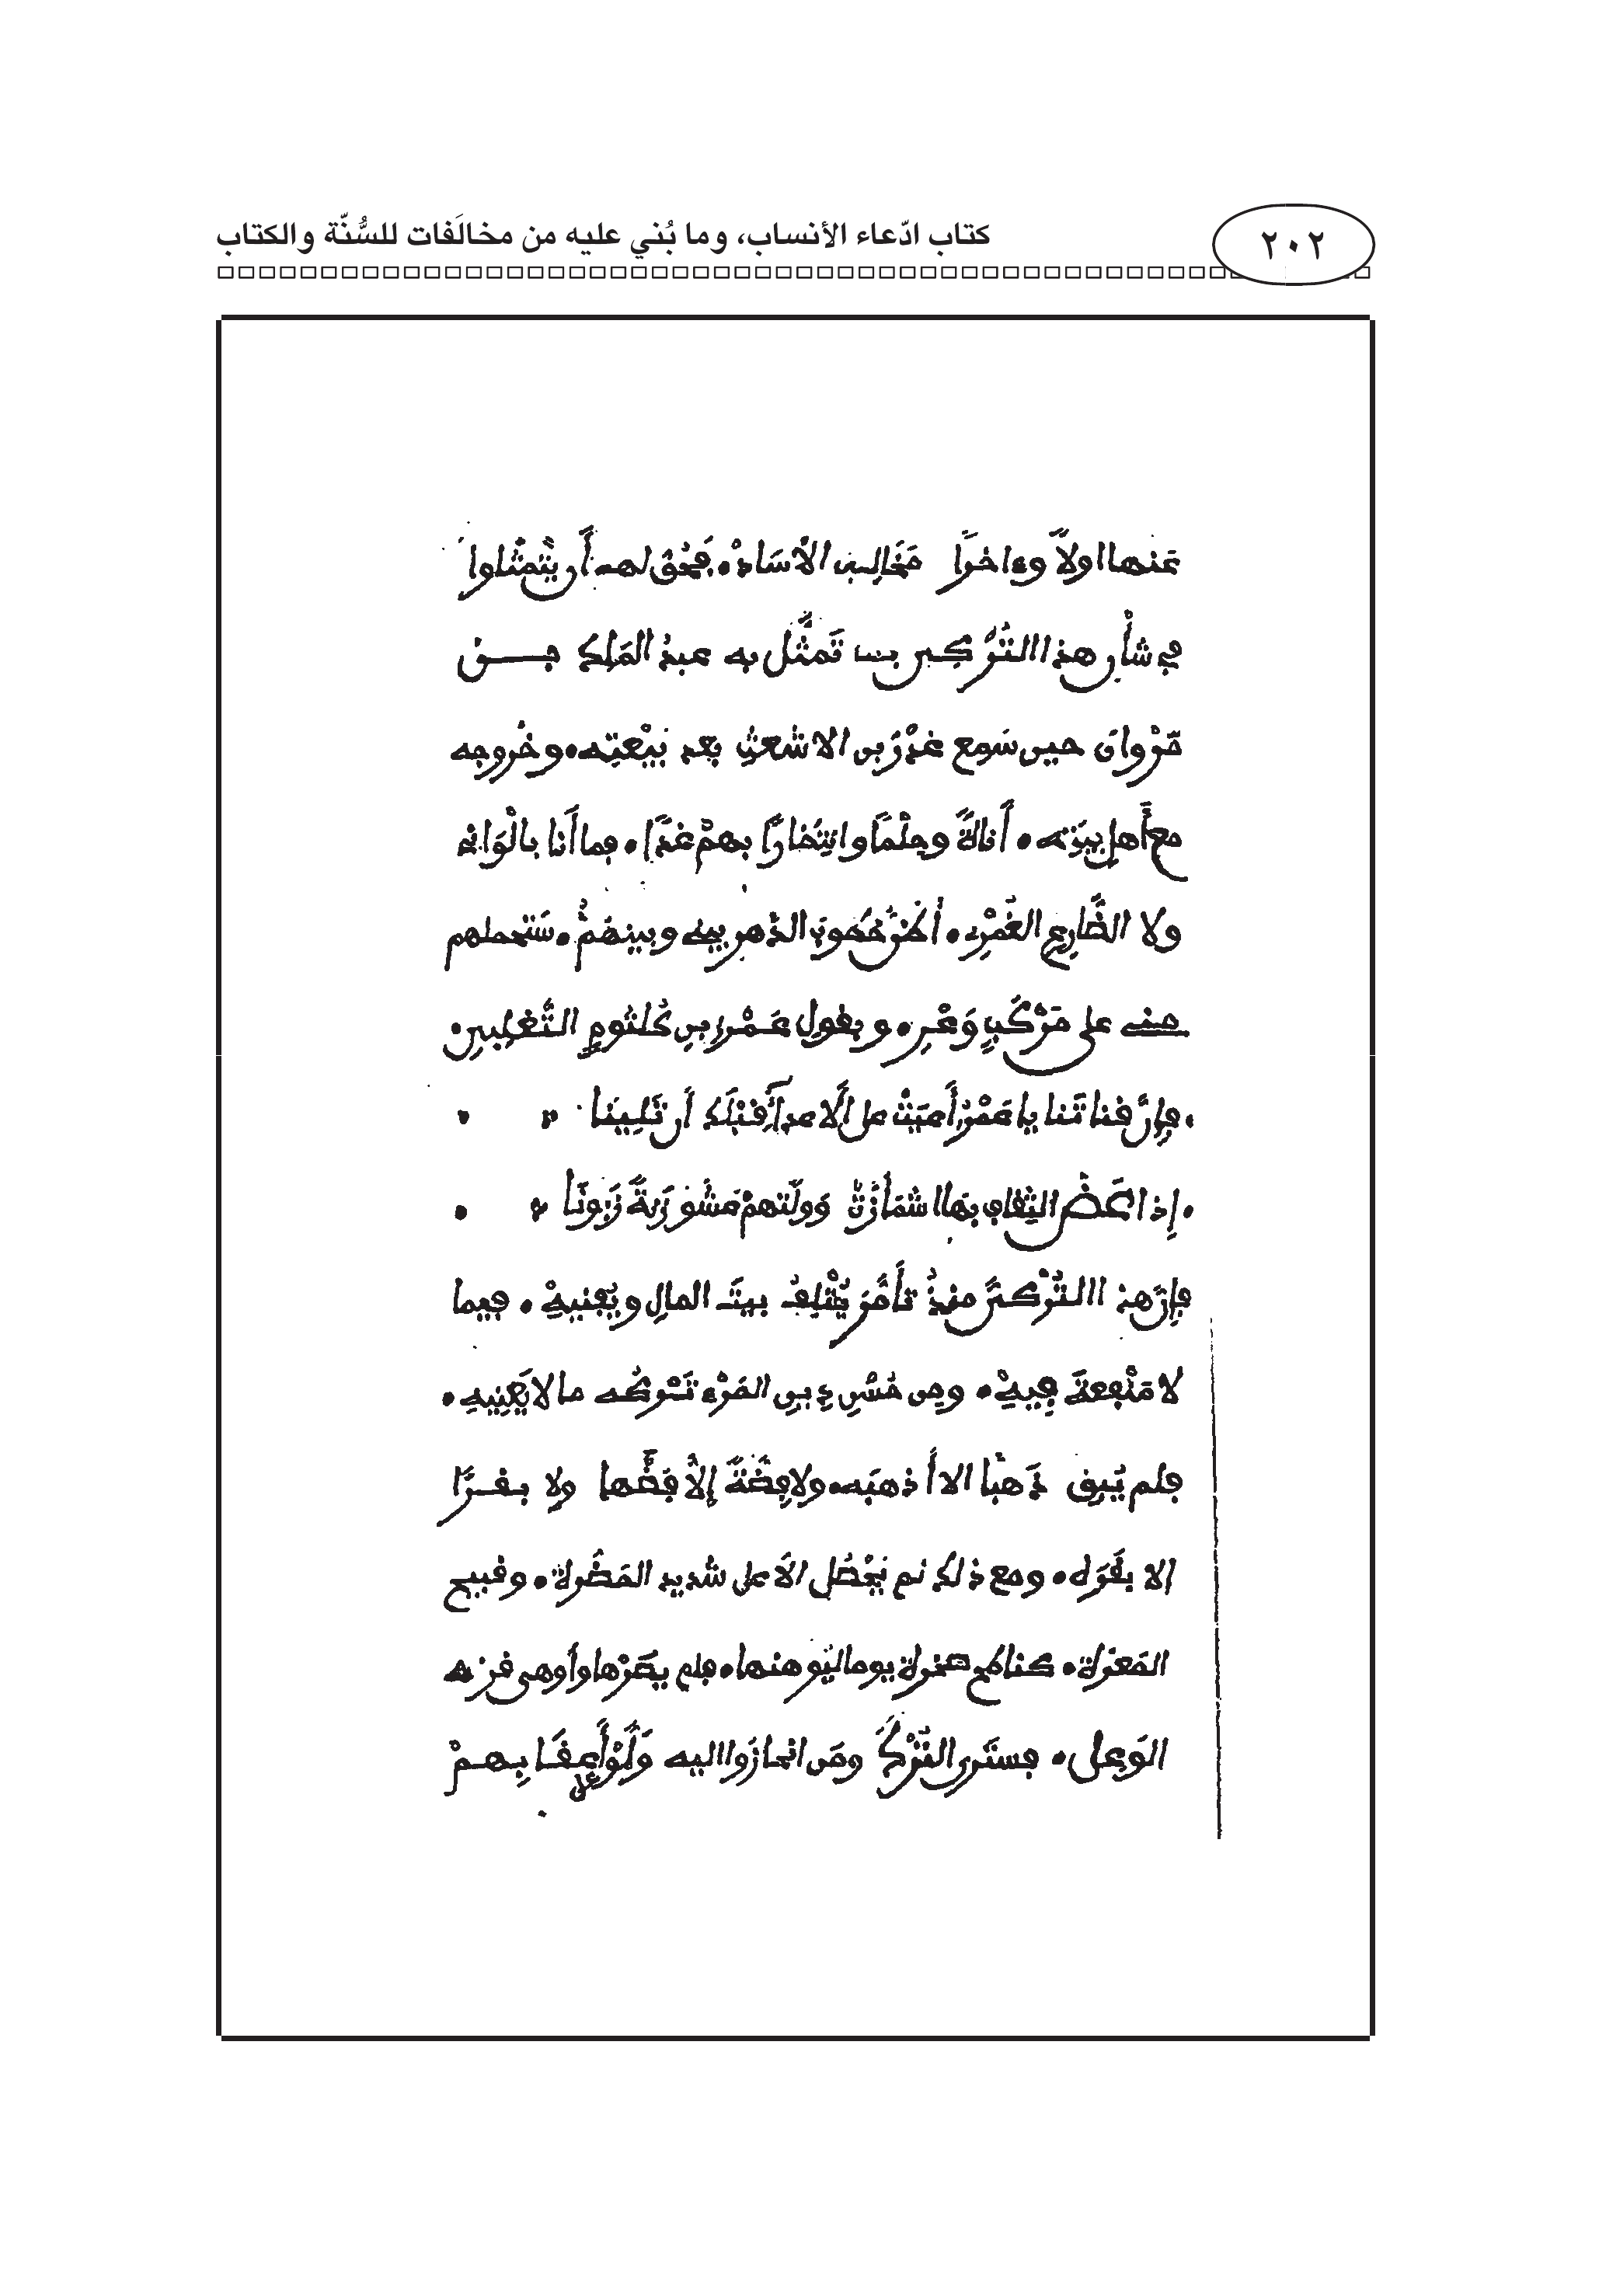 ٢٠٢
كتاب ادّعاء الأنساب، وما بُني عليه من مخالَفات للسُّنّة والكتاب
عنها اولاً وءاخرا مَخَالِب الآسَادْ، فَحُقّ لهم أن يتمثّلوا
في شأن هذا التُّرْكِي بما تَمثَّل به عبدُ المَلِك بـــن
مَرْوان حين سَمِع غدْرَ بن الاشعث بعد بَيْعَتِه، وخُروجه
مع أهل بيته، أناةً وحِلْماً وانتِظاراً بهمْ غداً، فما أنا بالْوَانِي
ولا الضَّارِعِ الغُمْرِ، أظنّ خطوبَ الدّهر بيني وبينهمُ، ستحملهم
مِنّي على مَرْكَبٍ وَعْرِ، وبقول عَمْرِو بنِ كُلثوم التَّغلبي،
فإنّ قناتَنا يا عَمْرُو أعْيَتْ على الأعداء قَبْلَك أن تَلِينا
إذا عَضَّ الثِّقَاف بها اشمَأزّتْ وولّتهمْ عَشَوزَنةً زَبُونَا
فإنّ هذا التُّرْكيّ منذُ تأمَّرَ يُتْلِف بيتَ المالِ ويُفنيهْ، فيما
لا مَنْفعةَ فِيهْ، ومِن حُسْنِ دِينِ المَرْءِ تَرْكُه ما لا يَعْنِيهِ،
فلم يُبقِ ذَهبًا الا أذهَبَه، ولا فِضّةً إلا فَضّها ولا بقَرًا
الا بقَرَه، ومع ذلك لم يَحْصُل الا على شديد المَضَرة، وقبيح
المَعَرة، كناطح صخرة يوما ليوهنها، فلم يَضِرْها وأوهى قرنه
الوَعِل، فستَرى التُّرْكَ ومَن انحازوا اليه وَلَّوْا على أعقابِهِمْ